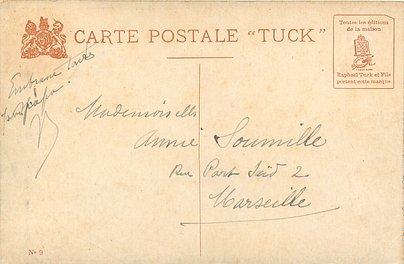 CARTE POSTALE “TUCK”
Toutes les éditions
de la maison
Raphaël Tuck et Fils
portent cette marque
papa
Mademoiselle
Annie Soumille
Rue Port Sud 2
Marseille
No 9